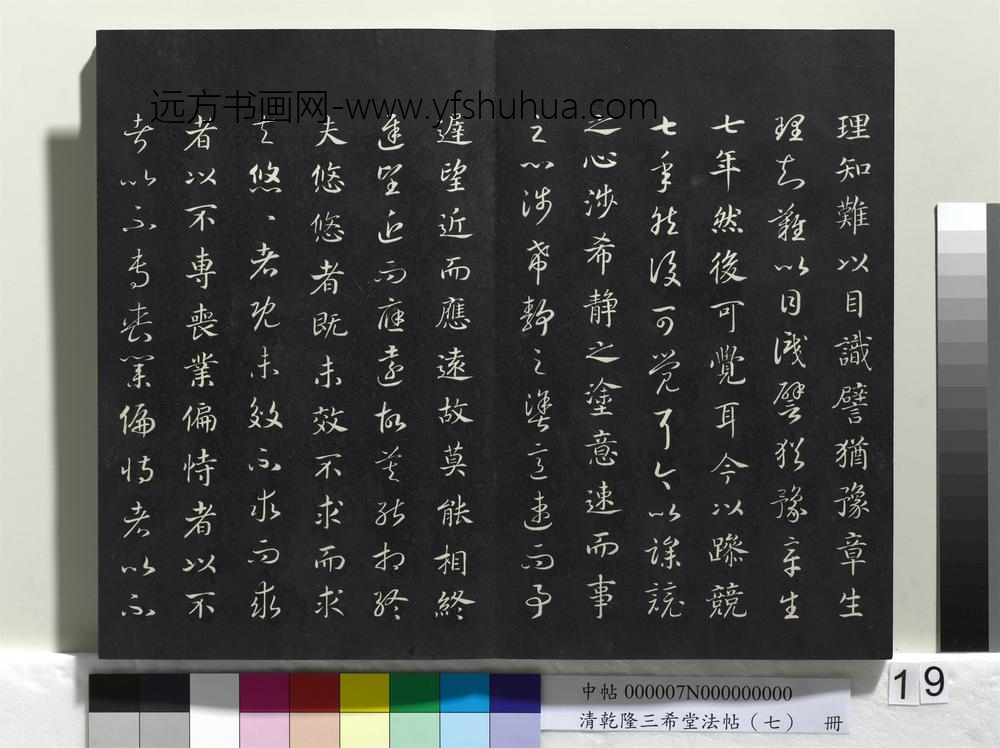 理知難以目識譬猶豫章生
理知難以目識譬猶豫章生
七年然後可覺耳今以躁競
七年然後可覺耳今以躁競
之心涉希静之塗意速而事
之心涉希静之塗意速而事
遲望近而應遠故莫能相終
遲望近而應遠故莫能相終
夫悠悠者既未效不求而求
夫悠〻者既未效不求而求
者以不專喪業偏恃者以不
者以不專喪業偏恃者以不
远方书画网-www.yfshuhua.com
中帖 000007N000000000
清乾隆三希堂法帖（七） 冊
19